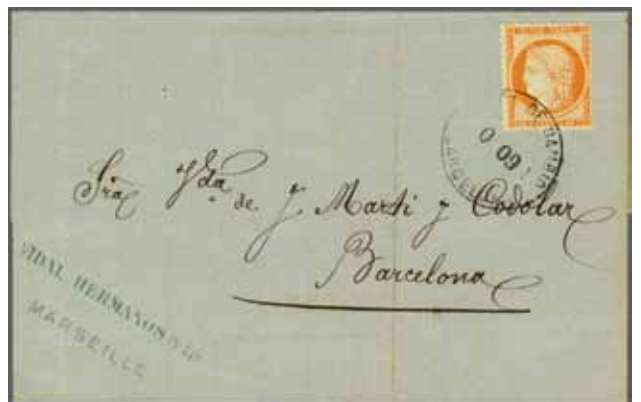 Sra Vda de J. Marti y Codolar
Barcelona
VIDAL HERMANOS
MARSEILLE